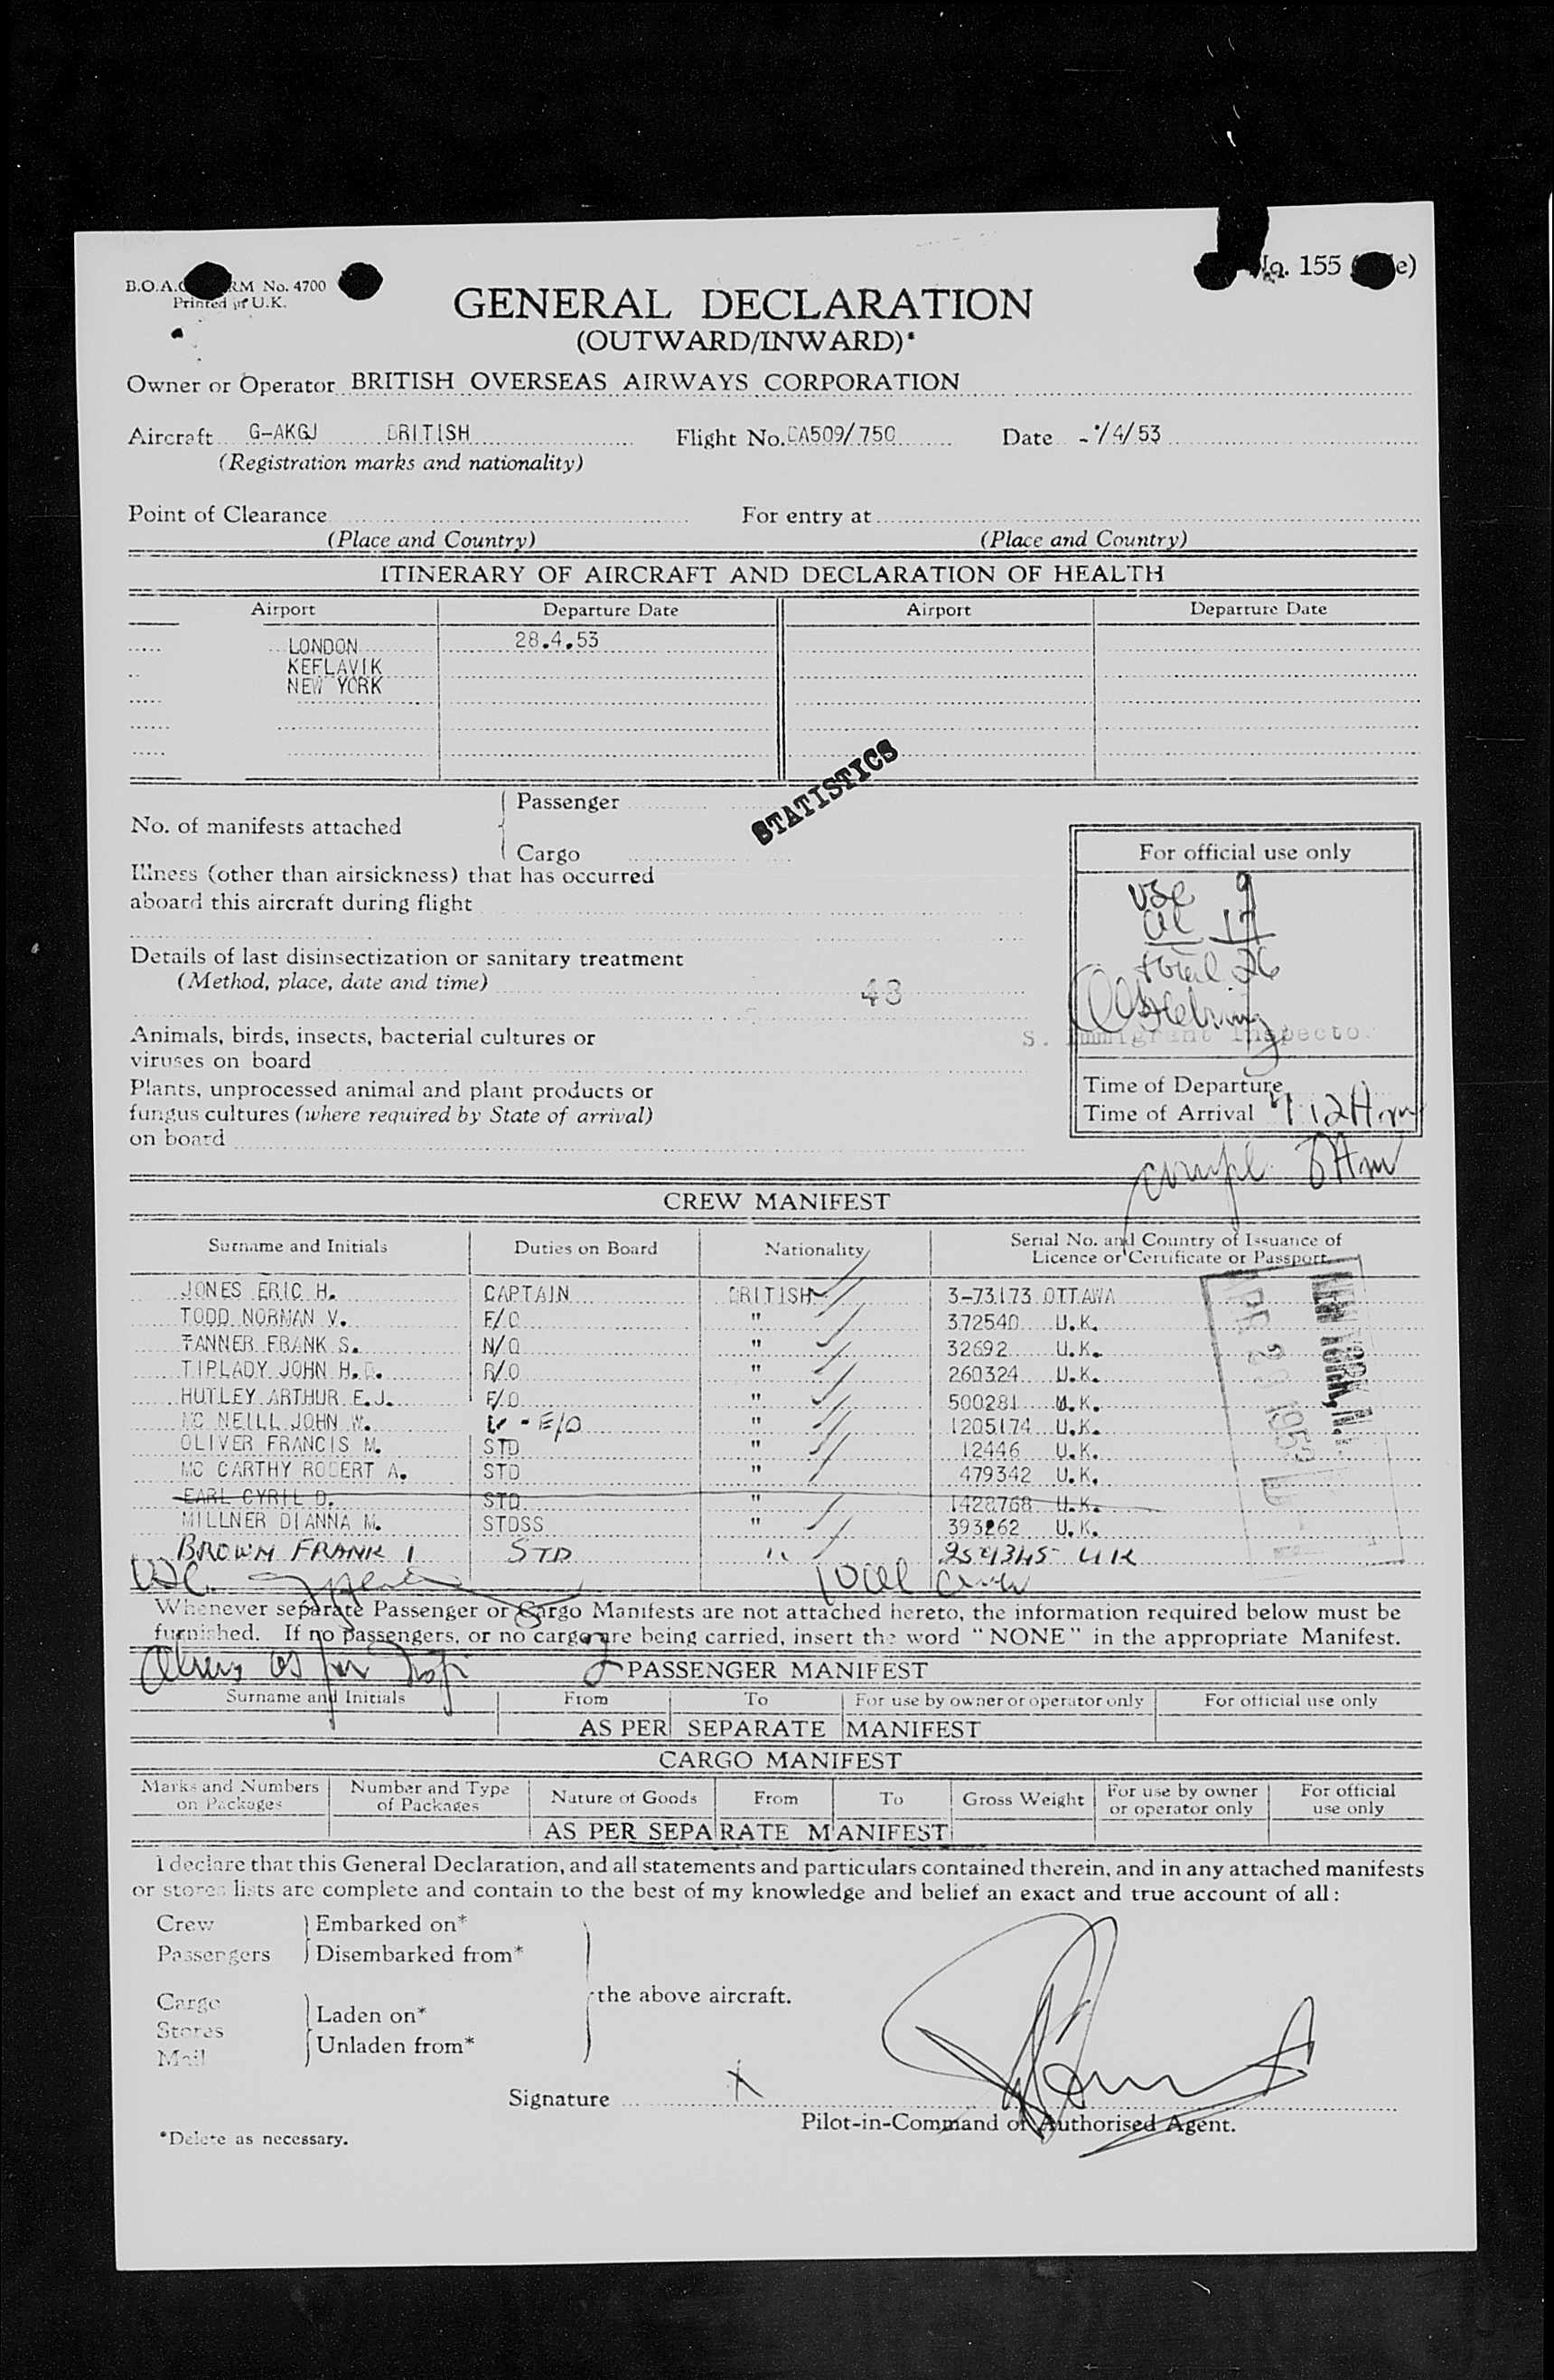 B.O.A.C. FORM No. 4700
No. 155
Printed in U.K.
GENERAL DECLARATION
(OUTWARD/INWARD)*
Owner or Operator BRITISH OVERSEAS AIRWAYS CORPORATION
Aircraft G-AKGJ BRITISH Flight No. BA509/750 Date /4/53
(Registration marks and nationality)
Point of Clearance For entry at
(Place and Country) (Place and Country)
ITINERARY OF AIRCRAFT AND DECLARATION OF HEALTH
Airport Departure Date Airport Departure Date
LONDON 28.4.53
KEFLAVIK
NEW YORK
STATISTICS
Passenger
No. of manifests attached
Cargo
For official use only
Illness (other than airsickness) that has occurred
aboard this aircraft during flight
USC 9
al 17
total 26
Details of last disinsectization or sanitary treatment
(Method, place, date and time) 48
S. Immigrant Inspector
Animals, birds, insects, bacterial cultures or
viruses on board
Plants, unprocessed animal and plant products or
fungus cultures (where required by State of arrival)
on board
Time of Departure
Time of Arrival 7 12 Am
compl. 8 Am
CREW MANIFEST
Surname and Initials Duties on Board Nationality Serial No. and Country of Issuance of
Licence or Certificate or Passport
JONES ERIC H. CAPTAIN BRITISH 3-73173 OTTAWA
TODD NORMAN V. F/O " 372540 U.K.
TANNER FRANK S. N/O " 32692 U.K.
TIPLADY JOHN H. R/O " 260324 U.K.
HUTLEY ARTHUR E.J. E/O " 500281 U.K.
MC NEILL JOHN W. E/O " 1205174 U.K.
OLIVER FRANCIS M. STD " 12446 U.K.
MC CARTHY ROBERT A. STD " 479342 U.K.
EARL CYRIL D. STD " 1428768 U.K.
MILLNER DIANNA M. STDSS " 393262 U.K.
BROWN FRANK I STD " UK
NEW YORK, N.Y.
APR 29 1953
Total Crew
Whenever separate Passenger or Cargo Manifests are not attached hereto, the information required below must be
furnished. If no passengers, or no cargo are being carried, insert the word "NONE" in the appropriate Manifest.
PASSENGER MANIFEST
Surname and Initials From To For use by owner or operator only For official use only
AS PER SEPARATE MANIFEST
CARGO MANIFEST
Marks and Numbers on Packages Number and Type of Packages Nature of Goods From To Gross Weight For use by owner or operator only For official use only
AS PER SEPARATE MANIFEST
I declare that this General Declaration, and all statements and particulars contained therein, and in any attached manifests
or stores lists are complete and contain to the best of my knowledge and belief an exact and true account of all:
Crew Embarked on*
Passengers Disembarked from*
the above aircraft.
Cargo Laden on*
Stores
Unladen from*
Mail
Signature X
Pilot-in-Command or Authorised Agent.
*Delete as necessary.